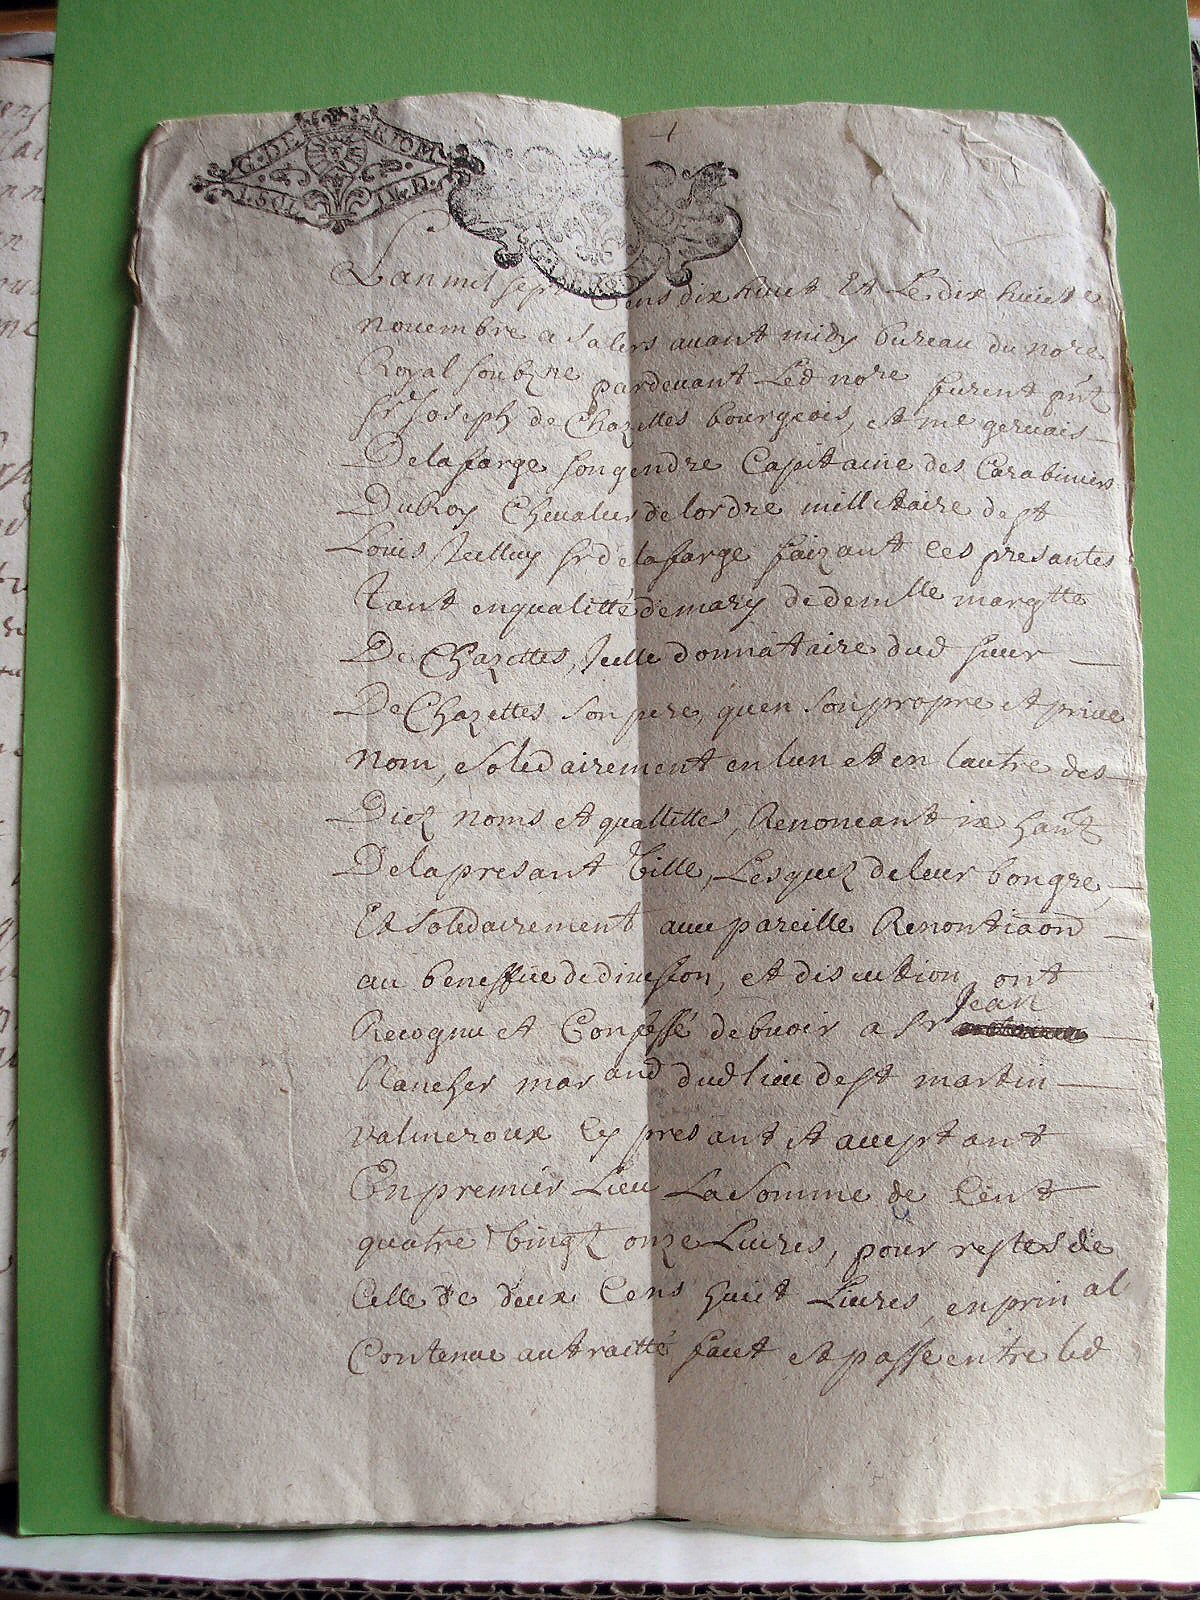 G. DE RIOM
L'an mil sept Cens dix huict Et Le dix huicte
nouembre a Salers auant midy bureau du nore
Royal soubzne pardeuant Led nore furent pnt
Sr Joseph de Chazettes bourgeois, et me geruais
Delafarge son gendre Capitaine des Carabiniers
Du Roy Cheualier de lordre millitaire de st
Louis Icelluy sr delafarge faizant ces presantes
Tant en qualitté de mary de demlle margtte
De Chazettes, Icelle donnataire dud sieur
De Chazettes son pere, quen son propre et priue
nom, soledairement en lun et en lautre des
Dictz noms et quallittes, Renoncant hant
De la presant Ville, Lesquelz de leur bon gre,
Et soledairement auec pareille Renontiaon
au beneffice de diuission, et discution, ont
Recognu et Confessé debuoir a Sr Jean
blancher marand dud lieu de st martin
valmeroux Cy presant et acceptant
En premier Lieu La Somme de Cent
quatre Vingtz onze Liures, pour restes de
Celle de deux Cens huict Liures, en prinal
Contenue au traitté faict et passe entre led